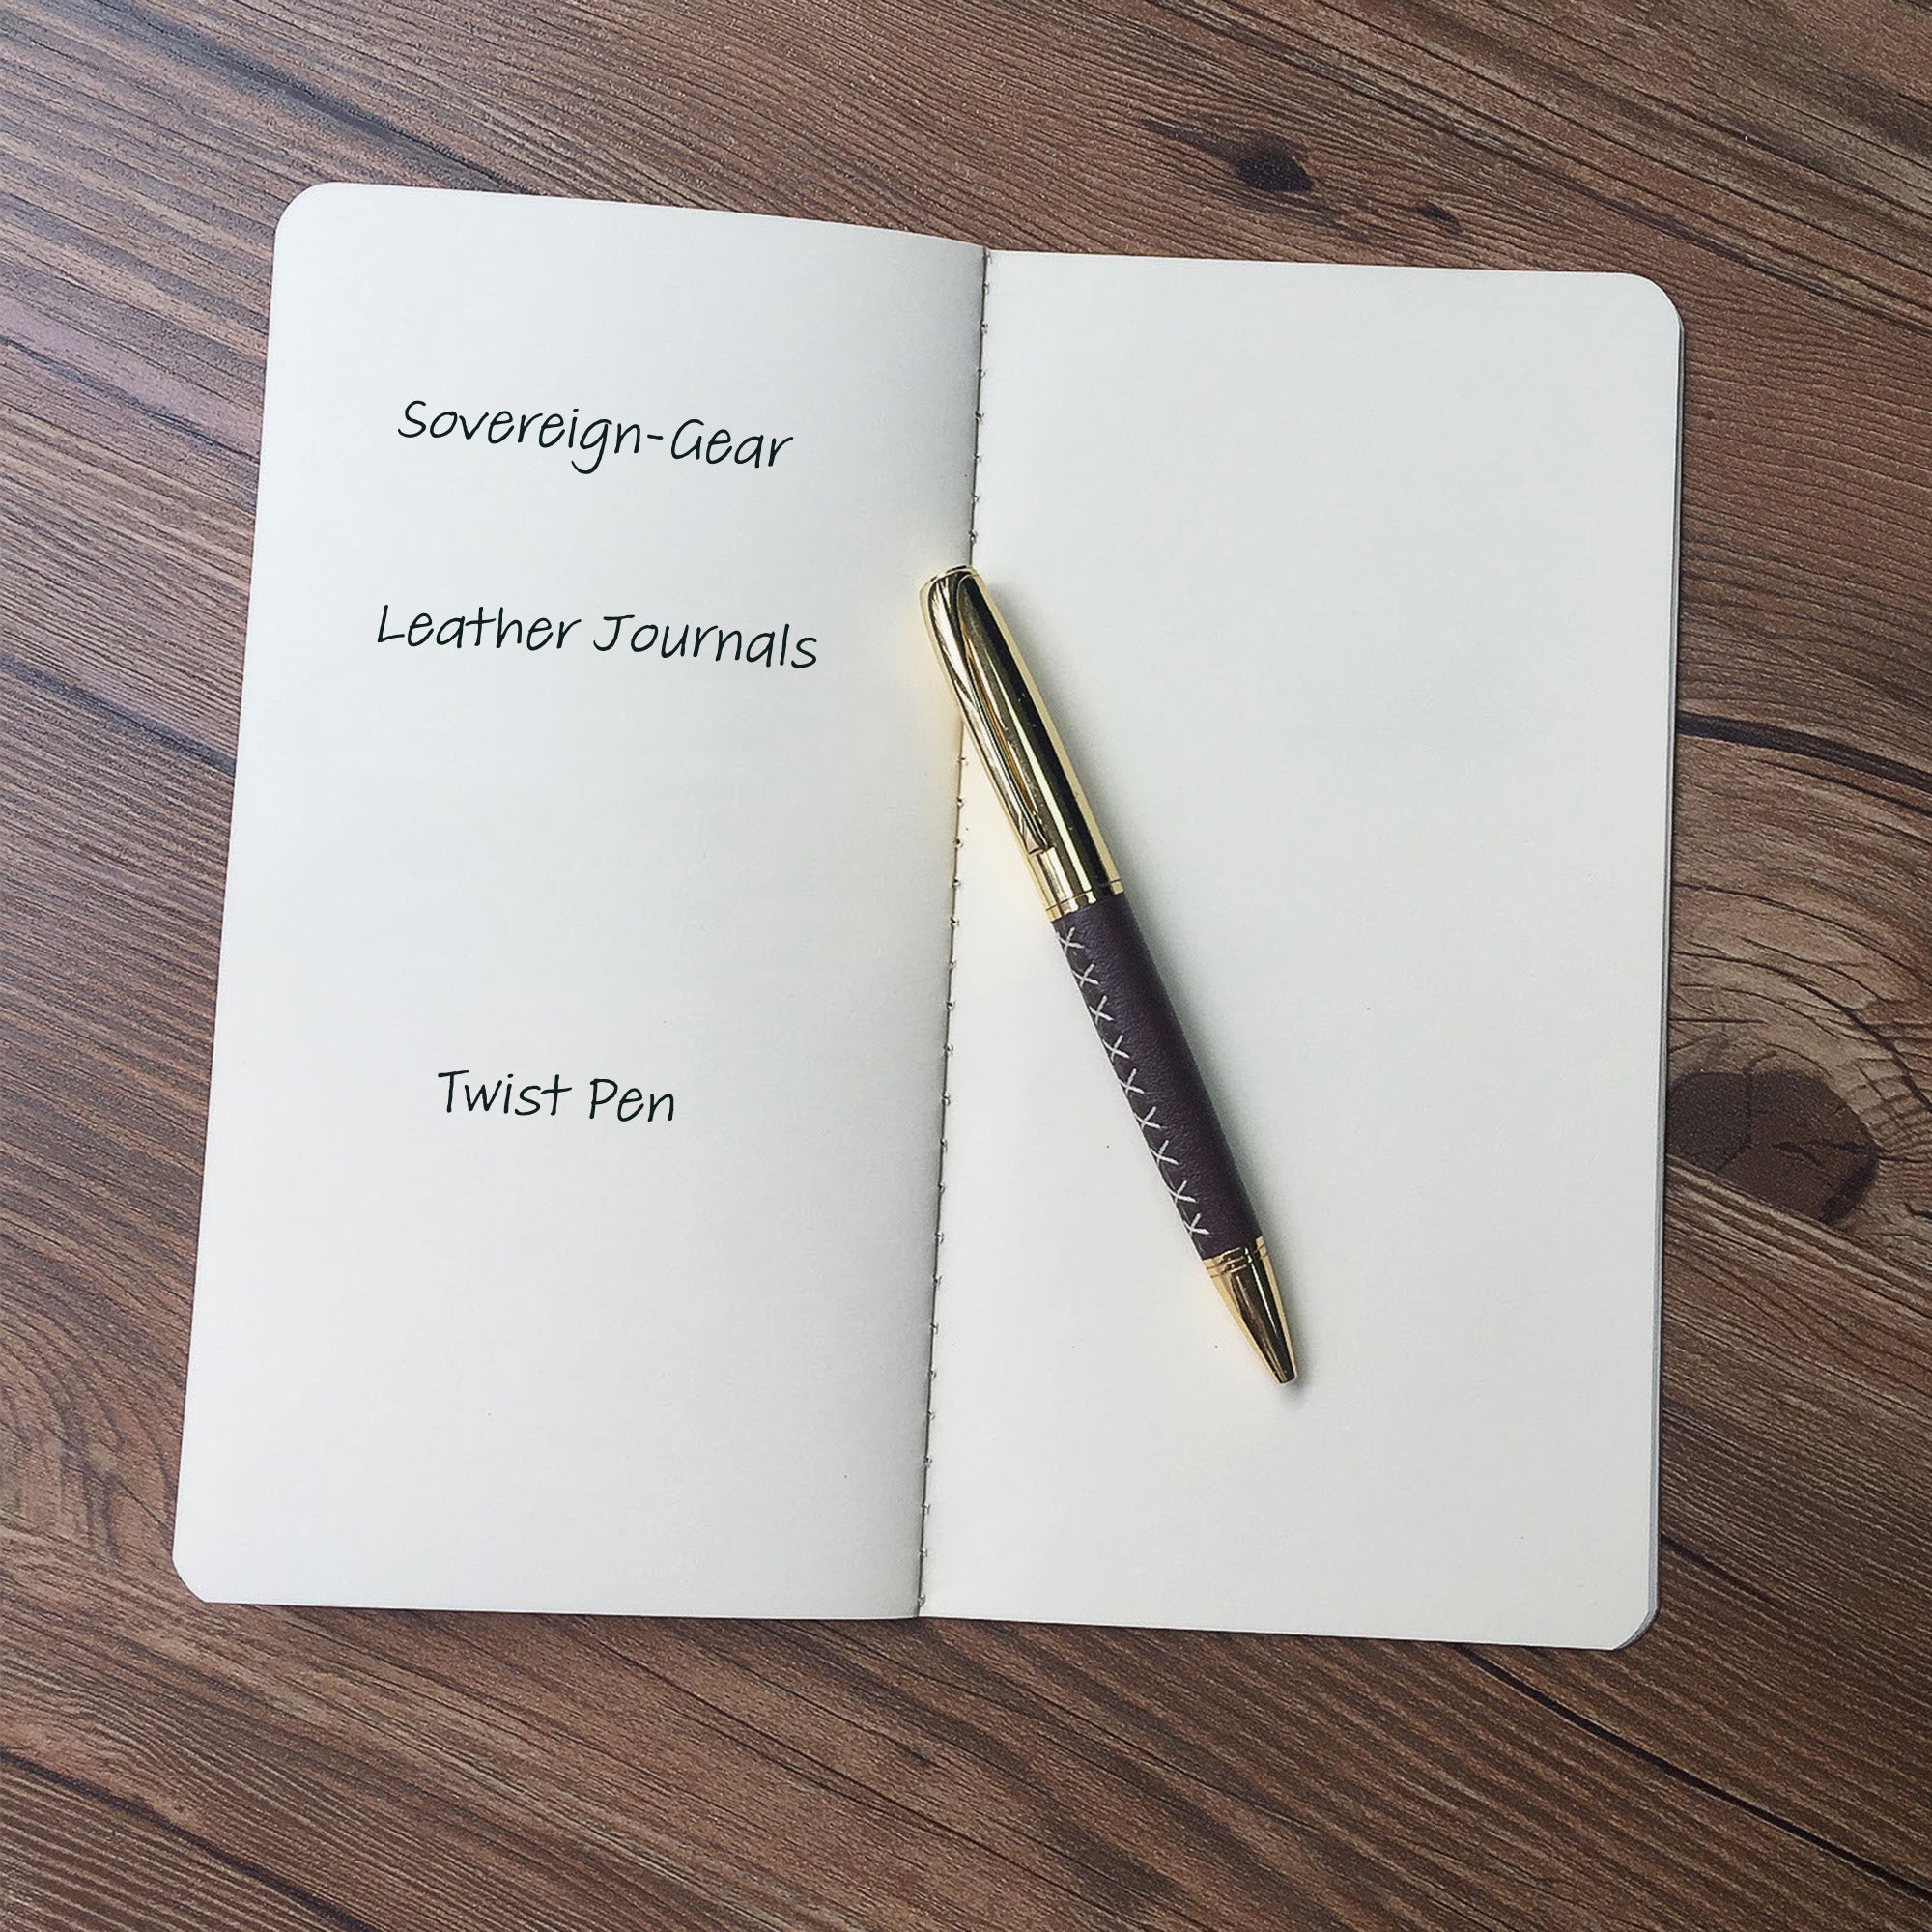 Sovereign-Gear
Leather Journals
Twist Pen